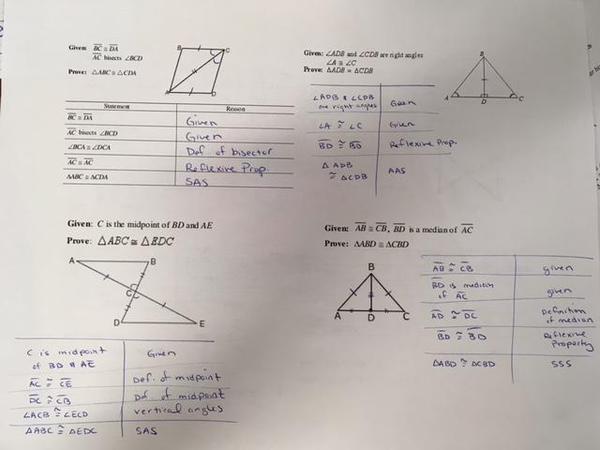 Given: BC ≅ DA
AC bisects ∠BCD
Prove: △ABC ≅ △CDA
B
C
A
D
Statement Reason
BC ≅ DA Given
AC bisects ∠BCD Given
∠BCA ≅ ∠DCA Def of bisector
AC ≅ AC Reflexive Prop.
△ABC ≅ △CDA SAS
Given: ∠ADB and ∠CDB are right angles
∠A ≅ ∠C
Prove: △ADB ≅ △CDB
B
A D C
∠ADB & ∠CDB
are right angles Given
∠A ≅ ∠C Given
BD ≅ BD Reflexive Prop.
△ ADB
≅ △CDB AAS
Given: C is the midpoint of BD and AE
Prove: △ABC ≅ △EDC
A B
C
D E
C is midpoint Given
of BD & AE
AC ≅ CE Def. of midpoint
DC ≅ CB Def of midpoint
∠ACB ≅ ∠ECD vertical angles
△ABC ≅ △EDC SAS
Given: AB ≅ CB, BD is a median of AC
Prove: △ABD ≅ △CBD
B
A D C
AB ≅ CB given
BD is median
of AC given
AD ≅ DC Definition
of median
BD ≅ BD Reflexive
Property
△ABD ≅ △CBD SSS